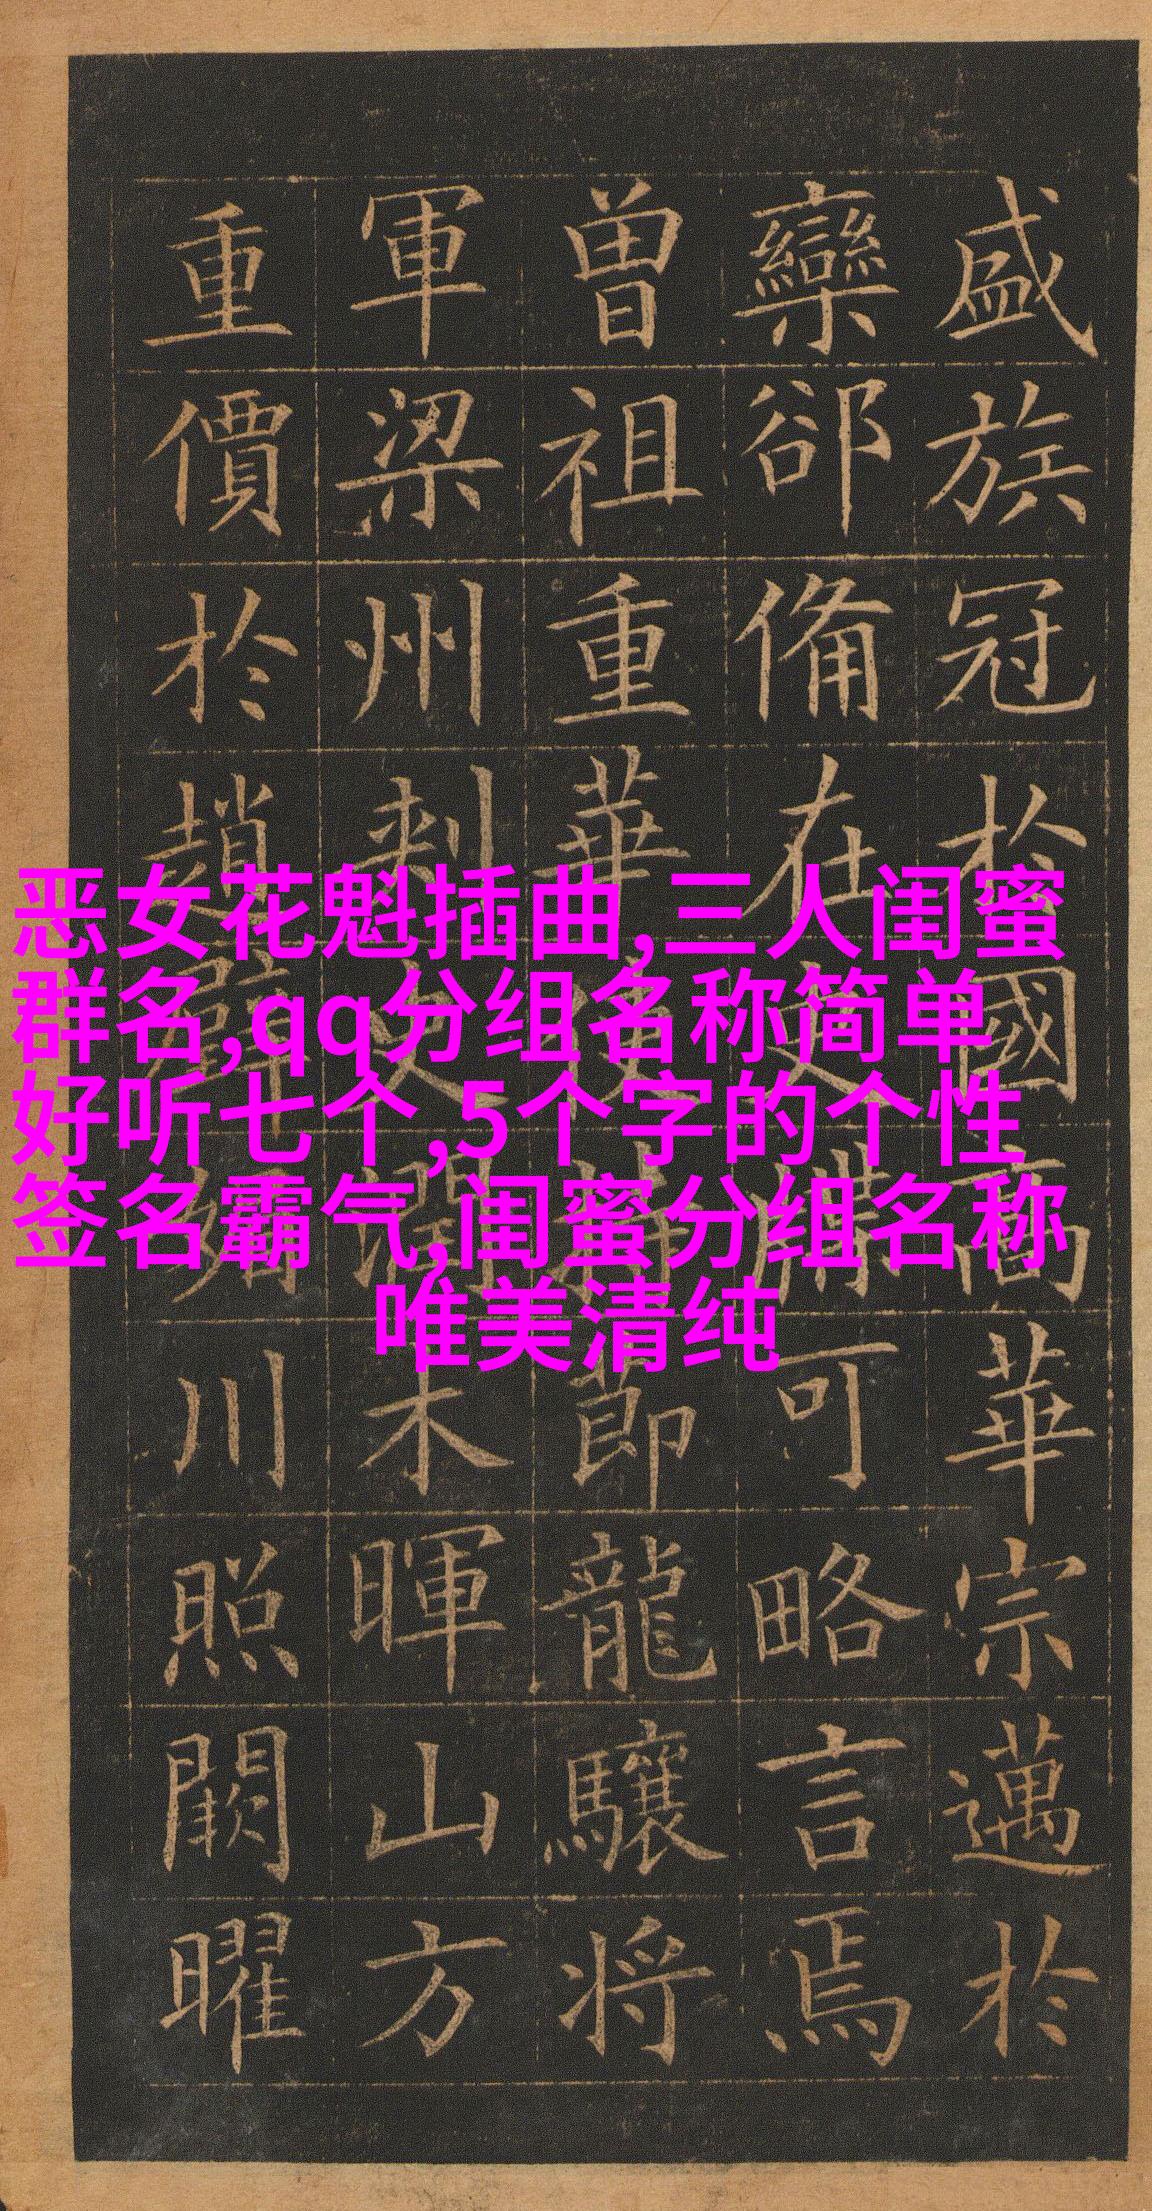 恶女花魁插曲,三人闺蜜
群名,qq分组名称简单
好听七个,5个字的个性
签名霸气,闺蜜分组名称
唯美清纯
盛族冠於國高華宗邁於
欒郤備在史牒可略言焉
曾祖重華使持節龍驤将
軍梁州刺史潤木暉山方
重價於趙璧媚川照闕曜